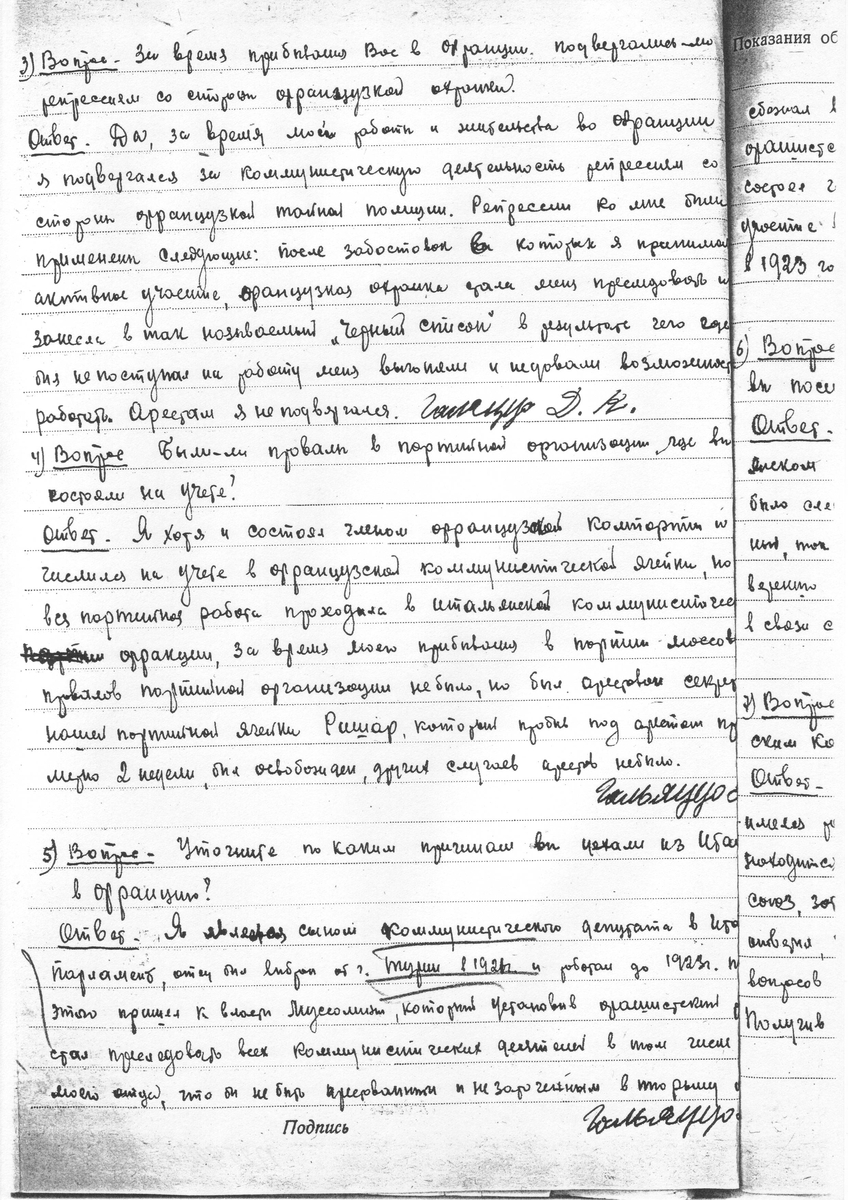 3) Вопрос - За время прибывания Вас в Франции. подвергались-ли
репрессиям со стороны французкой охранки.
Ответ. Да, за время моей работы и жительства во Франции
я подвергался за коммунистическую деятельность репрессиям со
стороны французкой тайной полиции. Репрессии ко мне были
применены следующие: после забостовок в которых я принимал
активное участие, французкая охранка стала меня преследовать и
занесла в так называемый „Черный список" в результате чего где
бы я не поступал на работу меня выгоняли и недовали возможност
работать. Арестам я не подвягался. Гальяццо Д. К.
4) Вопрос Были-ли провалы в партийной организации, где вы
состояли на учете?
Ответ. Я хотя и состоял членом французской компартии и
числился на учете в французской коммунистической ячейки, но
вся партийная работа проходила в итальянской коммунистичес
фракции, за время моего прибывания в партии массов
провалов партийной организации небыло, но был арестован секрет
нашей партийной ячейки Ришар, который пробыв под арестом пр
мерно 2 недели, был освобожден, других случаев арестов небыло.
Гальяццо
5) Вопрос - Уточните по каким причинам вы уехали из Ита
в францию?
Ответ - Я являюсь сыном коммунистического депутата в Ита
Парламент, отец был выбран от г. Турин в 1921г. и работал до 1923г. п
этого пришел к власти Муссолини, который установив фашистский
стал преследовать всех коммунистических деятелей в том числе
моего отца, что бы не быть арестованным и не заточенным в тюрьму
Подпись Гальяццо
Показания об
сбежал в
фашистс
состоя
участие
в 1923 го
6) Вопрос
вы посе
Ответ.
янском
было сле
ны, так
везенно
в связи с
7) Вопрос
ским ко
Ответ -
имелся
находитс
союз, за
ответил,
вопросов
Получив